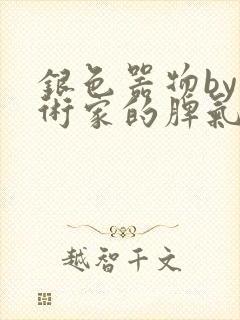 銀色器物by
術家的脾氣
越智千文